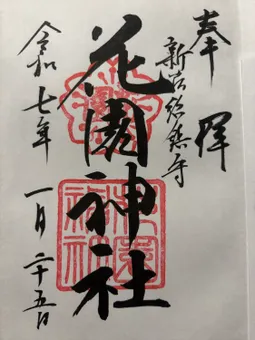 奉拝
新宿総鎮守
花園神社
令和七年 一月二十五日
花園神社